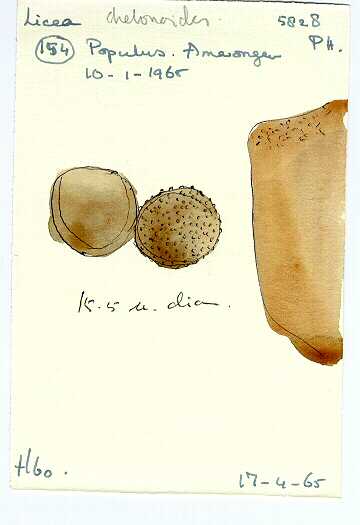 Licea chelonoides. 5828
154 Populus. Amerongen PH.
10-1-1965
15.5 u. dia.
Hbo.
17-4-65